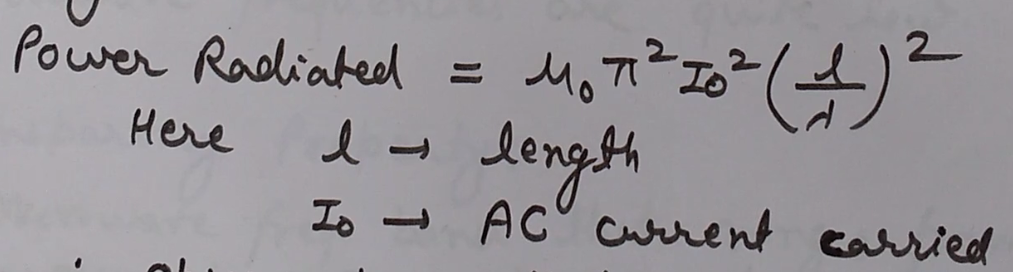 Power Radiated = μ₀ π² I₀² (l/λ)²
Here l → length
I₀ → AC current carried